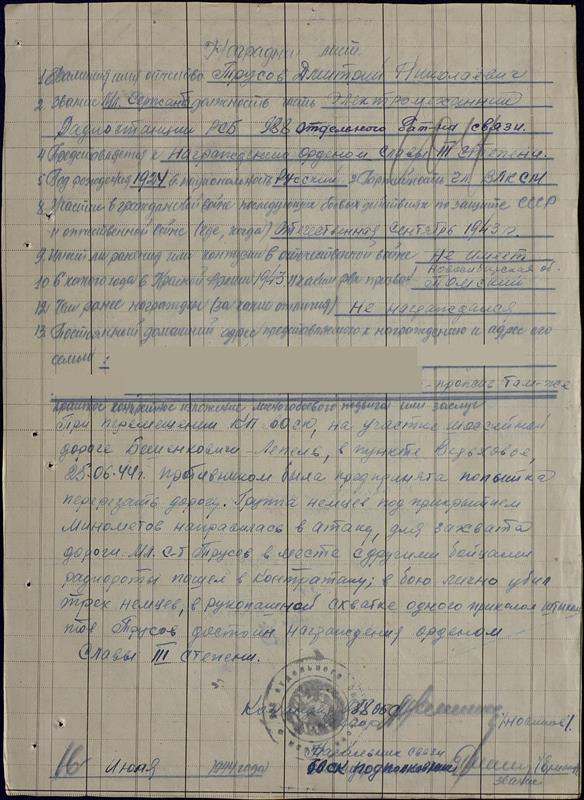 Наградной лист
1 Фамилия имя отчество Трусов Дмитрий Николаевич
2. Звание Мл. Сержант должность часть Электромеханник
Радиостанции РСБ 988 отдельного бат-на связи.
4 Представляется к Награждению орденом Славы III степени.
5 Год рождения 1924 в национальность Русский Партийность чл ВЛКСМ
8 Участие в гражданской войне последующих боевых действиях по защите СССР
и отечественной войне (где, когда) Отечественная Сентябрь 1943 г.
9 Имеет ли ранения или контузии в отечественной войне Не имеет
10 в Красной Армии 1943 Новосибирская об.
Томский
12 Чем ранее награжден (за какие отличия) Не награждался
13 Постоянный домашний адрес представляемого к награждению и адрес его
семьи :
краткое конкретное изложение личного боевого подвига или заслуг
При перемещении КП на участке шоссейной
дороге Бешенковичи - Лепель, в пункте
25.06.44г. противником была предпринята попытка
перерезать дорогу. Группа немцев под прикрытием
минометов направилась в атаку, для захвата
дороги. Мл. с-т Трусов в месте с другими бойцами
радиороты пошел в контратаку; в бою лично убил
трех немцев, в рукопашной схватке одного приколол штыком
тов Трусов достоин награждения орденом
Славы III степени.
988
Начальник связи
подполковник
звание
16 Июня 1944 года